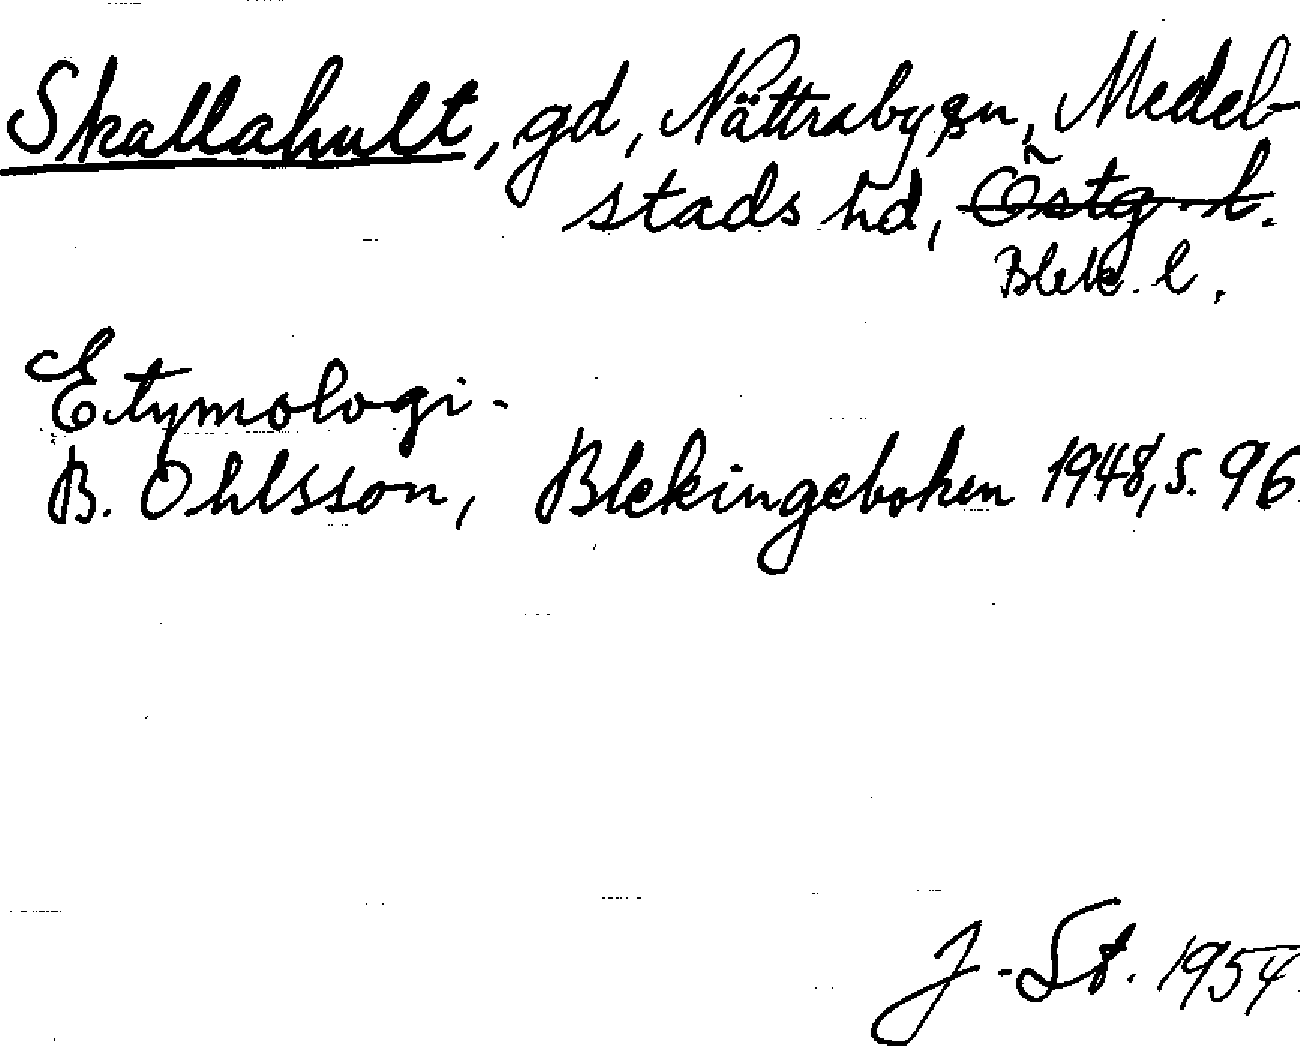 Skallahult, gd, Nättraby sn, Medel-
stads hd, Östg. l.
Blek. l.
Etymologi.
B. Ohlsson, Blekingeboken 1948, s. 96.
J. St. 1954